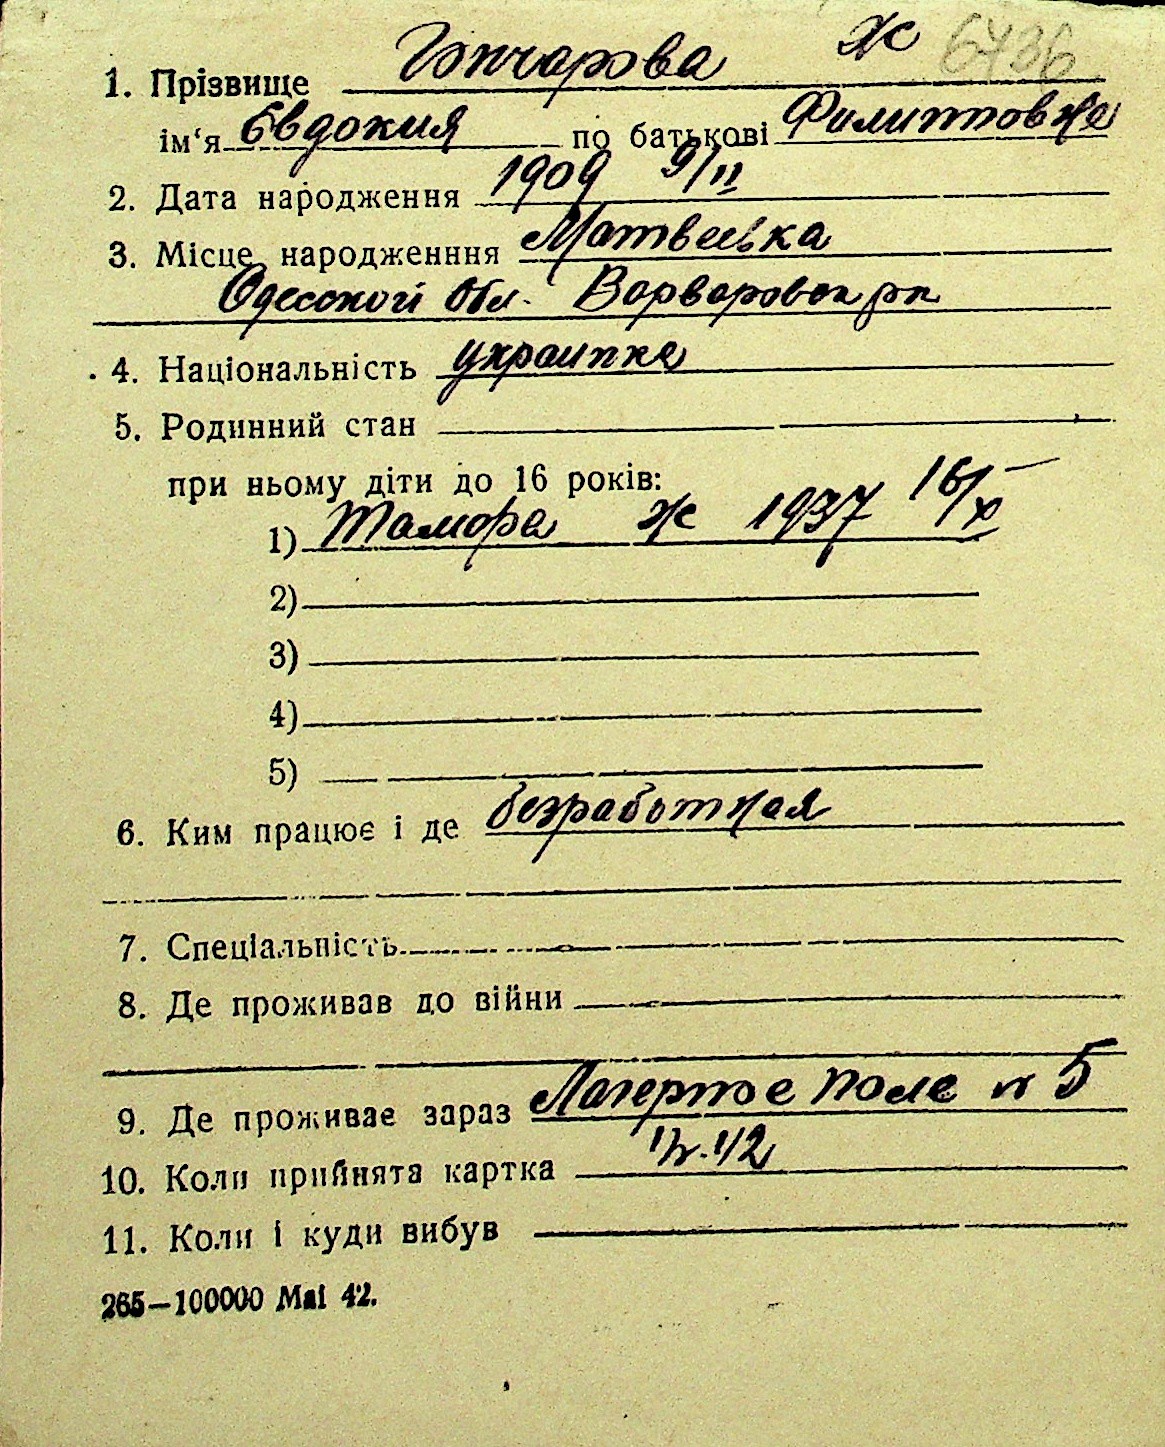 6736
1. Прізвище Гончарова Ж
ім‘я Евдокия по батькові Филипповна
2. Дата народження 1909 9/II
3. Місце народженння Матвеевка
Одесской Обл. Варваровск рн
4. Національність украинка
5. Родинний стан
при ньому діти до 16 років:
1) Тамара Ж 1937 16/X
2)
3)
4)
5)
6. Ким працює і де безработная
7. Спеціальність
8. Де проживав до війни
9. Де проживає зараз Лагерное поле 5
10. Коли прийнята картка 42
11. Коли і куди вибув
265—100000 Mai 42.